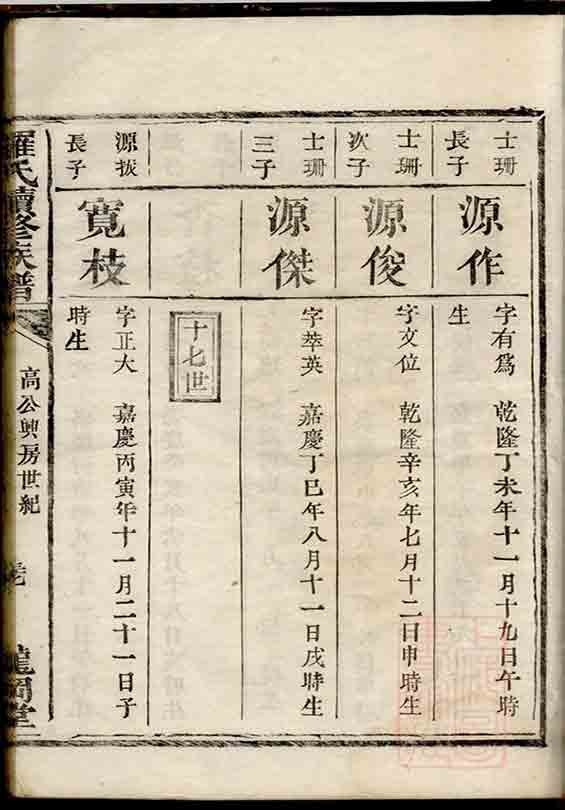 士珊
長子
源作
字有爲 乾隆丁未年十一月十九日午時
生
士珊
次子
源俊
字文位 乾隆辛亥年七月十二日申時生
士珊
三子
源傑
字萃英 嘉慶丁巳年八月十一日戌時生
十七世
源拔
長子
寬枝
字正大 嘉慶丙寅年十一月二十一日子
時生
羅氏續修族譜
高公興房世紀